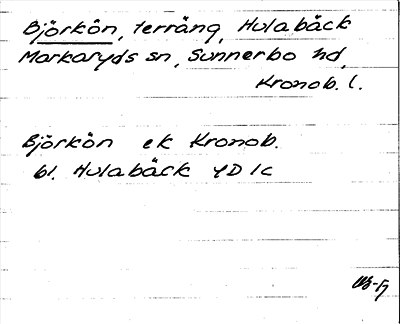 Björkön, terräng, Hulabäck
Markaryds sn, Sunnerbo hd,
Kronob. l.
Björkön ek Kronob.
bl. Hulabäck 4D 1c